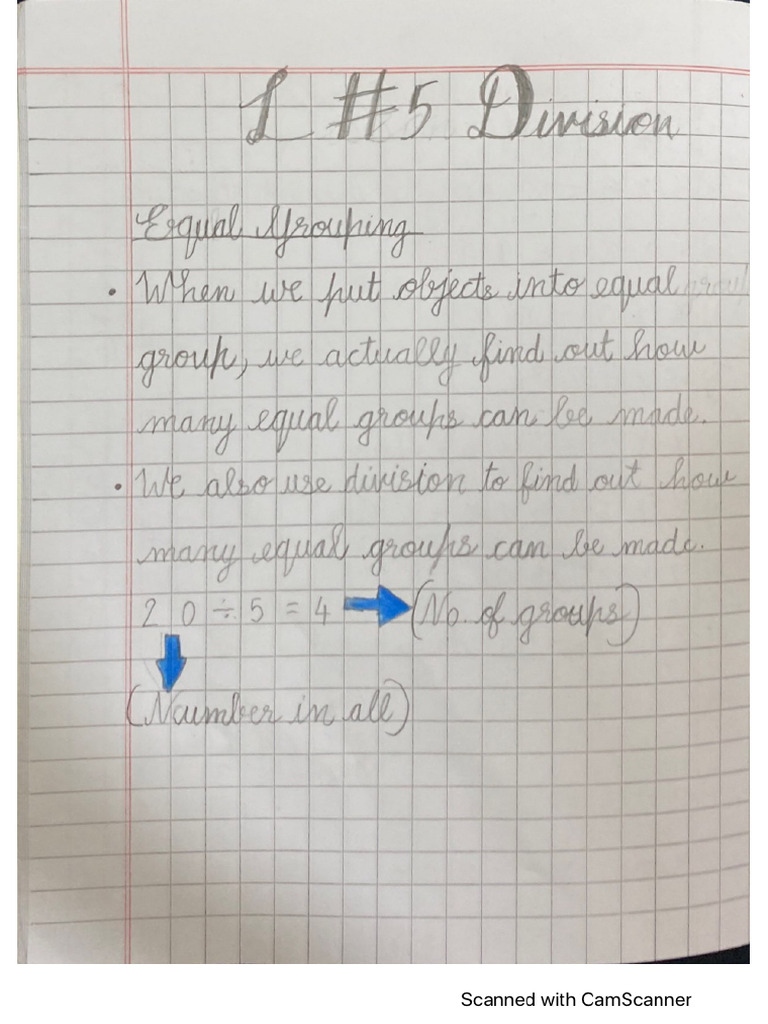 L #5 Division
Equal Grouping
• When we put objects into equal
group, we actually find out how
many equal groups can be made.
• We also use division to find out how
many equal groups can be made.
20 ÷ 5 = 4 → (No. of groups)
(Naumber in all)
Scanned with CamScanner